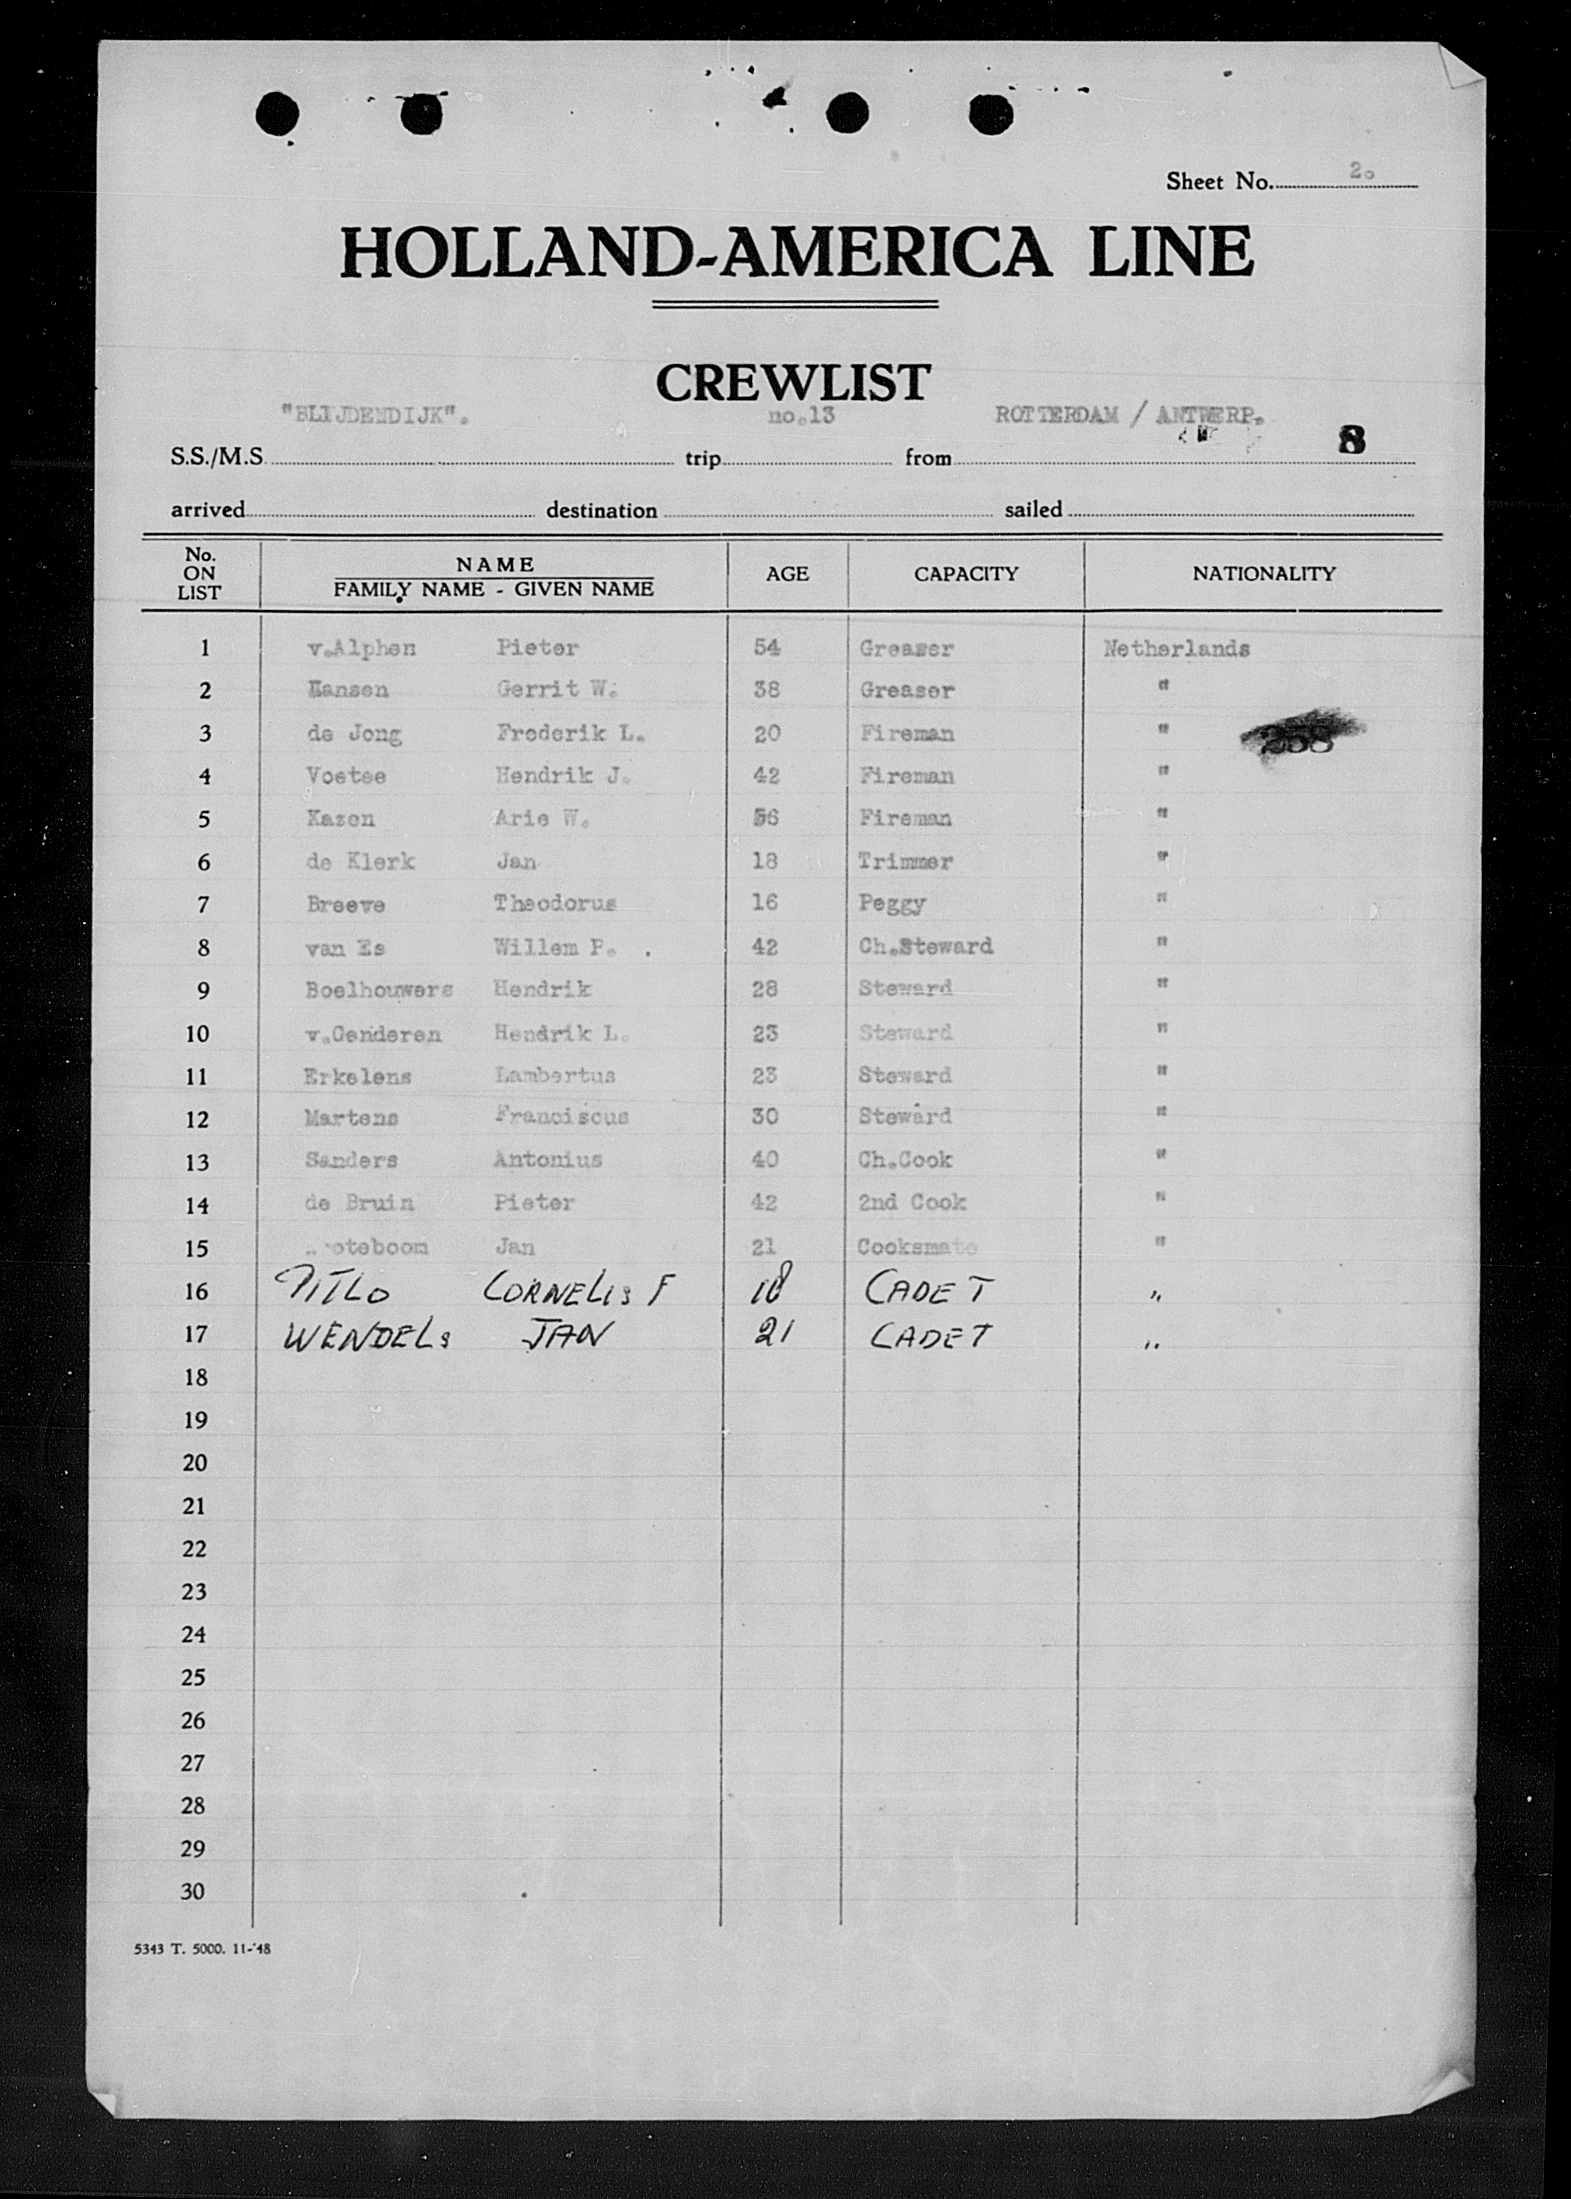 Sheet No. 2.
HOLLAND-AMERICA LINE
CREWLIST
"BLIJDENDIJK". no.13 ROTTERDAM / ANTWERP.
S.S./M.S. trip from 8
arrived destination sailed
No. ON LIST NAME FAMILY NAME - GIVEN NAME AGE CAPACITY NATIONALITY
1 v.Alphen Pieter 54 Greaser Netherlands
2 Hansen Gerrit W. 38 Greaser "
3 de Jong Frederik L. 20 Fireman "
4 Voetee Hendrik J. 42 Fireman "
5 Kazen Arie W. 56 Fireman "
6 de Klerk Jan 18 Trimmer "
7 Breeve Theodorus 16 Peggy "
8 van Es Willem P. 42 Ch.Steward "
9 Boelhouwers Hendrik 28 Steward "
10 v.Genderen Hendrik L. 23 Steward "
11 Erkelens Lambertus 23 Steward "
12 Martens Franciscus 30 Steward "
13 Sanders Antonius 40 Ch.Cook "
14 de Bruin Pieter 42 2nd Cook "
15 Jan 21 Cooksmate "
16 PITLO CORNELIS F 18 CADET "
17 WENDELS JAN 21 CADET "
18
19
20
21
22
23
24
25
26
27
28
29
30
5343 T. 5000. 11-'48